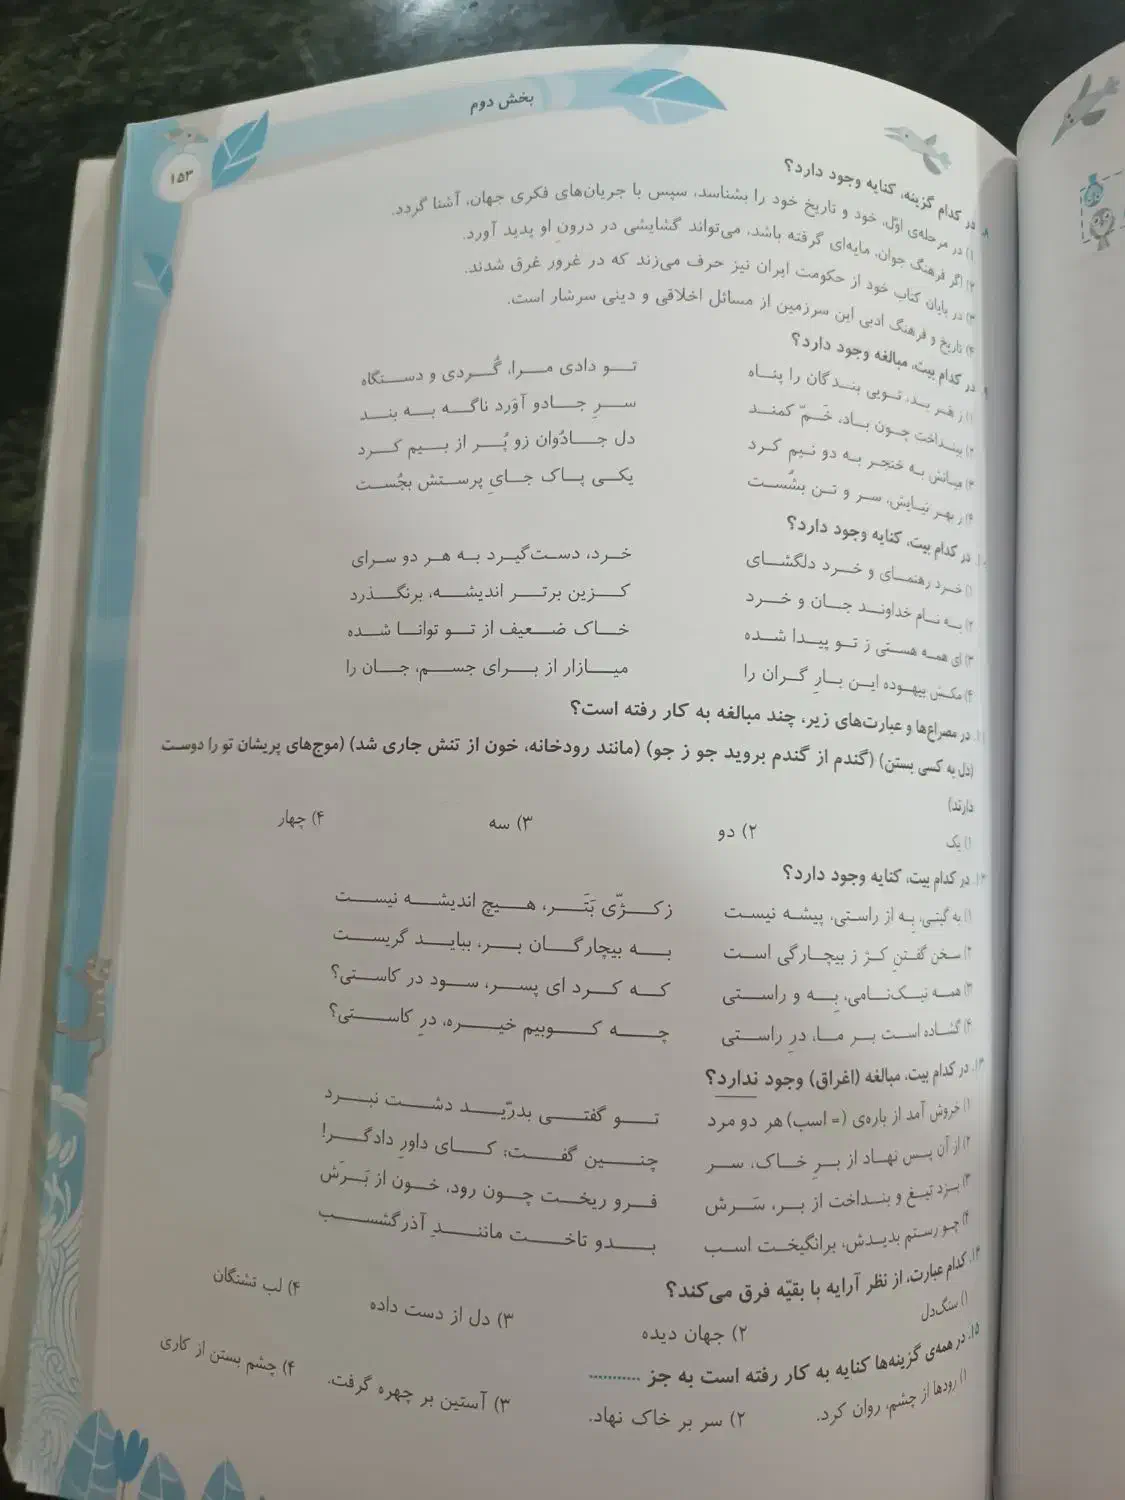 بخش دوم
۱۵۳
۸. در کدام گزینه، کنایه وجود دارد؟
۱) در مرحله‌ی اوّل، خود و تاریخ خود را بشناسد، سپس با جریان‌های فکری جهان، آشنا گردد.
۲) اگر فرهنگ جوان، مایه‌ای گرفته باشد، می‌تواند گشایشی در درونِ او پدید آورد.
۳) در پایان کتاب خود از حکومت ایران نیز حرف می‌زند که در غرور غرق شدند.
۴) تاریخ و فرهنگ ادبی این سرزمین از مسائل اخلاقی و دینی سرشار است.
۹. در کدام بیت، مبالغه وجود دارد؟
۱) ز هر بد، تویی بندگان را پناه تو دادی مرا، گُردی و دستگاه
۲) بینداخت چون باد، خَمّ کمند سرِ جادو آوَرد ناگه به بند
۳) میانش به خنجر به دو نیم کرد دل جادُوان زو پُر از بیم کرد
۴) ز بهر نیایش، سر و تن بشُست یکی پاک جایِ پرستش بجُست
۱۰. در کدام بیت، کنایه وجود دارد؟
۱) خرد رهنمای و خرد دلگشای خرد، دست‌گیرد به هر دو سرای
۲) به نام خداوند جان و خرد کزین برتر اندیشه، برنگذرد
۳) ای همه هستی ز تو پیدا شده خاک ضعیف از تو توانا شده
۴) مکش بیهوده این بارِ گران را میازار از برای جسم، جان را
۱۱. در مصراع‌ها و عبارت‌های زیر، چند مبالغه به کار رفته است؟
(دل به کسی بستن) (گندم از گندم بروید جو ز جو) (مانند رودخانه، خون از تنش جاری شد) (موج‌های پریشان تو را دوست
دارند)
۱) یک ۲) دو ۳) سه ۴) چهار
۱۲. در کدام بیت، کنایه وجود دارد؟
۱) به گیتی، بِه از راستی، پیشه نیست ز کژّی بَتَر، هیچ اندیشه نیست
۲) سخن گفتنِ کژ ز بیچارگی است به بیچارگان بر، بباید گریست
۳) همه نیک‌نامی، بِه و راستی که کرد ای پسر، سود در کاستی؟
۴) گشاده است بر ما، درِ راستی چه کوبیم خیره، درِ کاستی؟
۱۳. در کدام بیت، مبالغه (اغراق) وجود ندارد؟
۱) خروش آمد از باره‌ی (= اسب) هر دو مرد تو گفتی بدرّید دشت نبرد
۲) از آن پس نهاد از برِ خاک، سر چنین گفت: کای داورِ دادگر!
۳) بزد تیغ و بنداخت از بر، سَرش فرو ریخت چون رود، خون از بَرَش
۴) چو رستم بدیدش، برانگیخت اسب بدو تاخت مانندِ آذرگشسب
۱۴. کدام عبارت، از نظر آرایه با بقیّه فرق می‌کند؟
۱) سنگ‌دل ۲) جهان دیده ۳) دل از دست داده ۴) لب تشنگان
۱۵. در همه‌ی گزینه‌ها کنایه به کار رفته است به جز ...........
۱) رودها از چشم، روان کرد. ۲) سر بر خاک نهاد. ۳) آستین بر چهره گرفت. ۴) چشم بستن از کاری